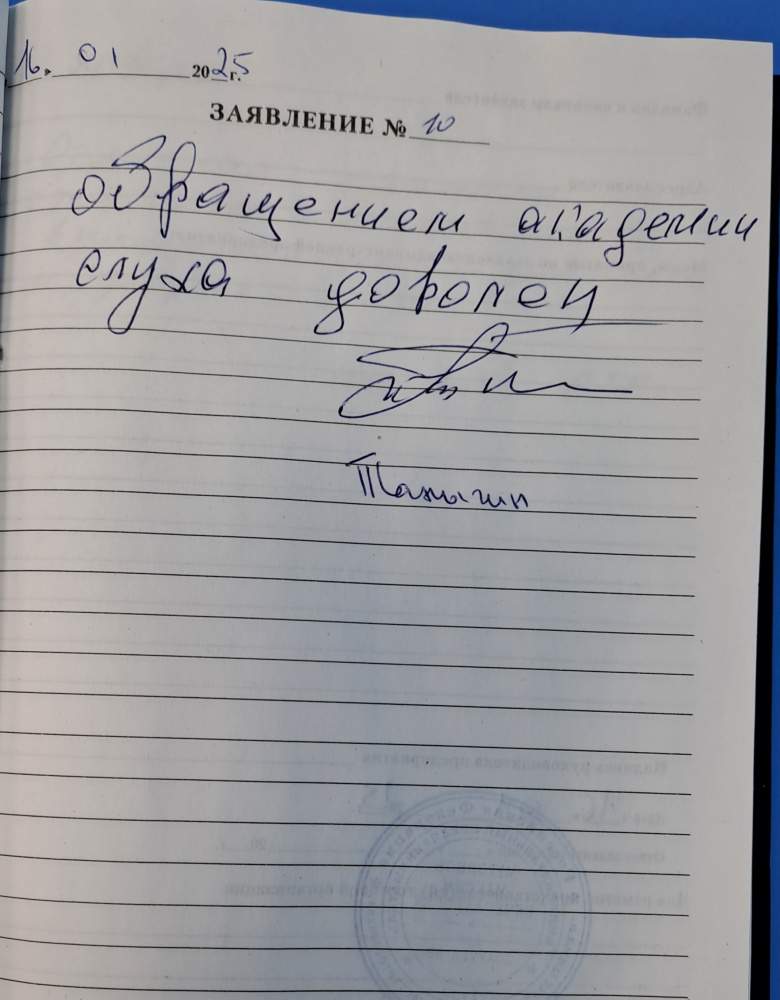 16. 01 2025 г.
ЗАЯВЛЕНИЕ № 10
обращением академии
слуха доволен